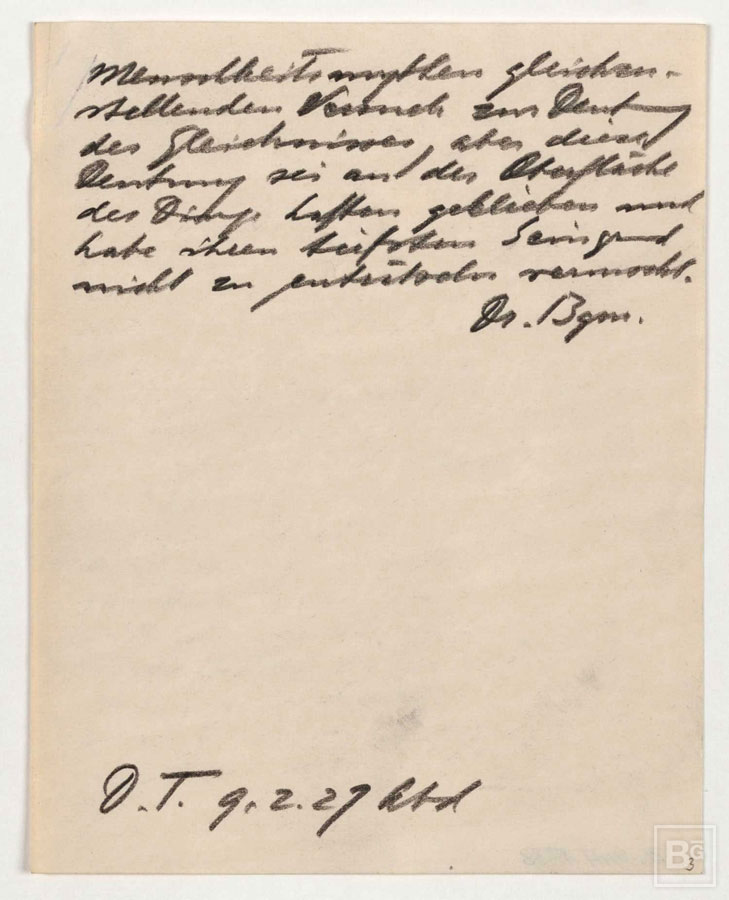 Menschheitsmythen gleichzu-
stellenden Versuch zur Deutung
des Gleichnisses, aber diese
Deutung sei an der Oberfläche
der Dinge haften geblieben und
habe ihren tiefsten Seinsgrund
nicht zu enträtseln vermocht.
Dr. Bgm.
D.T. 9.2.27 Abd
BG
3